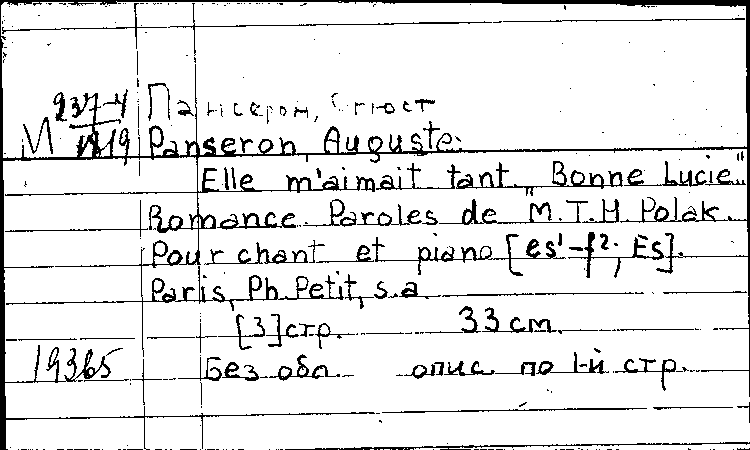 237-4 Пансерон, Огюст
М 1819 Panseron, Auguste.
Elle m'aimait tant „Bonne Lucie"
Romance. Paroles de M.T.H. Polak.
Pour chant et piano [es¹-f²; Es].
Paris, Ph. Petit, s.a.
[3]стр. 33 cm.
19365 Без обл. опис. по 1-й стр.